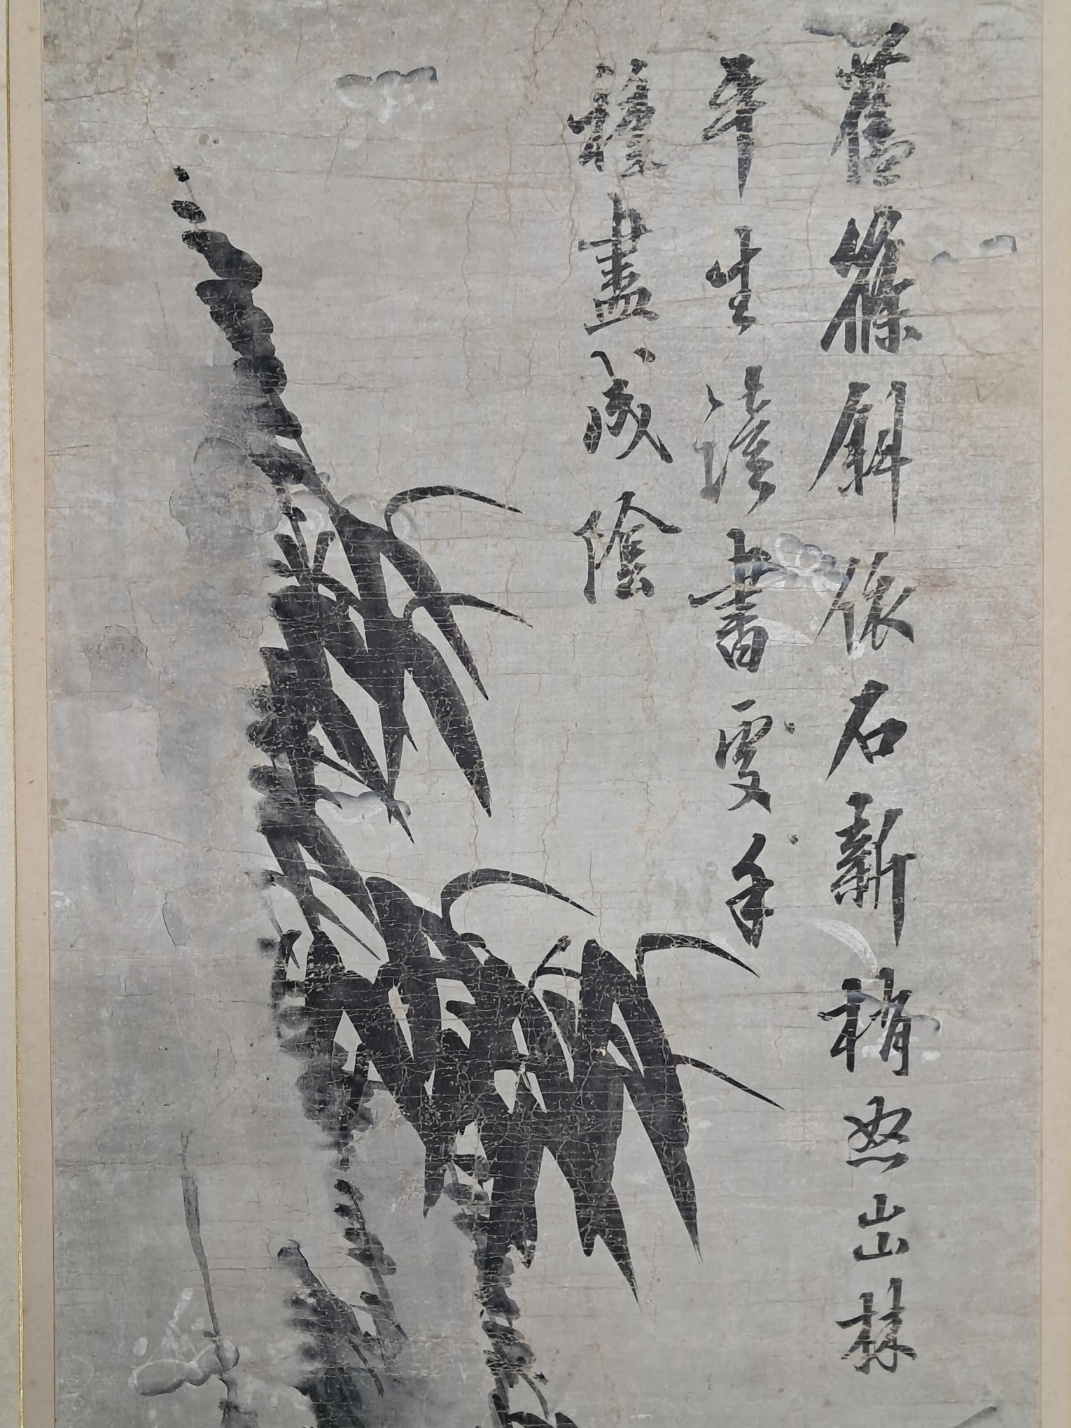 舊篠斜依石新梢出林
平生讀書處手
種盡成陰